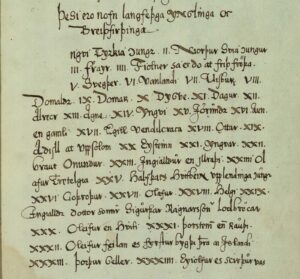 Þesi ero nofn langfeþga ynglinga oc
Breiþfirþinga
ngvi Tyrkia kungr. II. Niorþur Svia kungur
III. Frayr. IIII Fiolner sa er do at Friþfroþa.
V. Svegþer. VI. Vanlandi VII. Visbur. VIII.
Domaldr IX. Domar. X Dygve. XI. Dagur XII.
Alrecr XIII. Agne. XIV Yngvi XV. Iorundr XVI. Aun
en gamli XVII. Egill Vendilcraca XVIII. Ottar. XIX.
Aþisll at Uppsolom XX Eysteinn XXI. Yngvar. XXII.
braut Onundur. XXIII. Ingialldur en illraþi. XXIIII Ol
afur Tretelgia XXV. Halfdan Hvitbein upplendinga kungr
XXVI Goþroþur. XXVII Olafur XXVIII Helgi XXIX.
Ingialldur dottor sonur Sigurþar Ragnarsonar Lodbrocar
XXX. Olafur en Hviti. XXXI. þorsteinn en Rauþi.
XXXII Olafur feilan es fyrstur bygþi þra an Islandi.
XXXIII. þorþur Geller. XXXIIII.